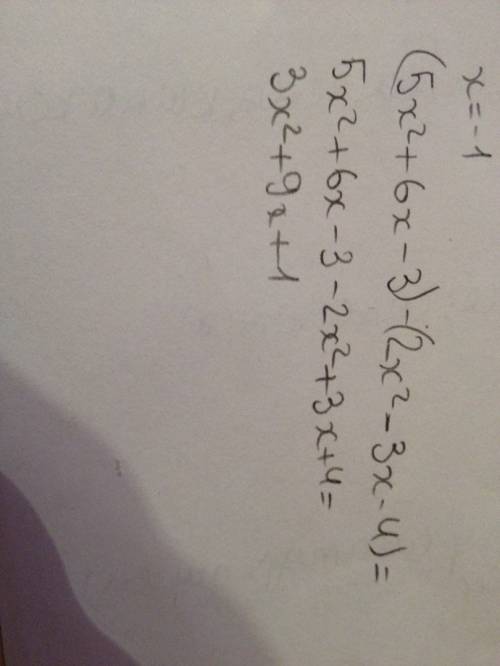 x = -1
(5x² + 6x - 3) - (2x² - 3x - 4) =
5x² + 6x - 3 - 2x² + 3x + 4 =
3x² + 9x + 1